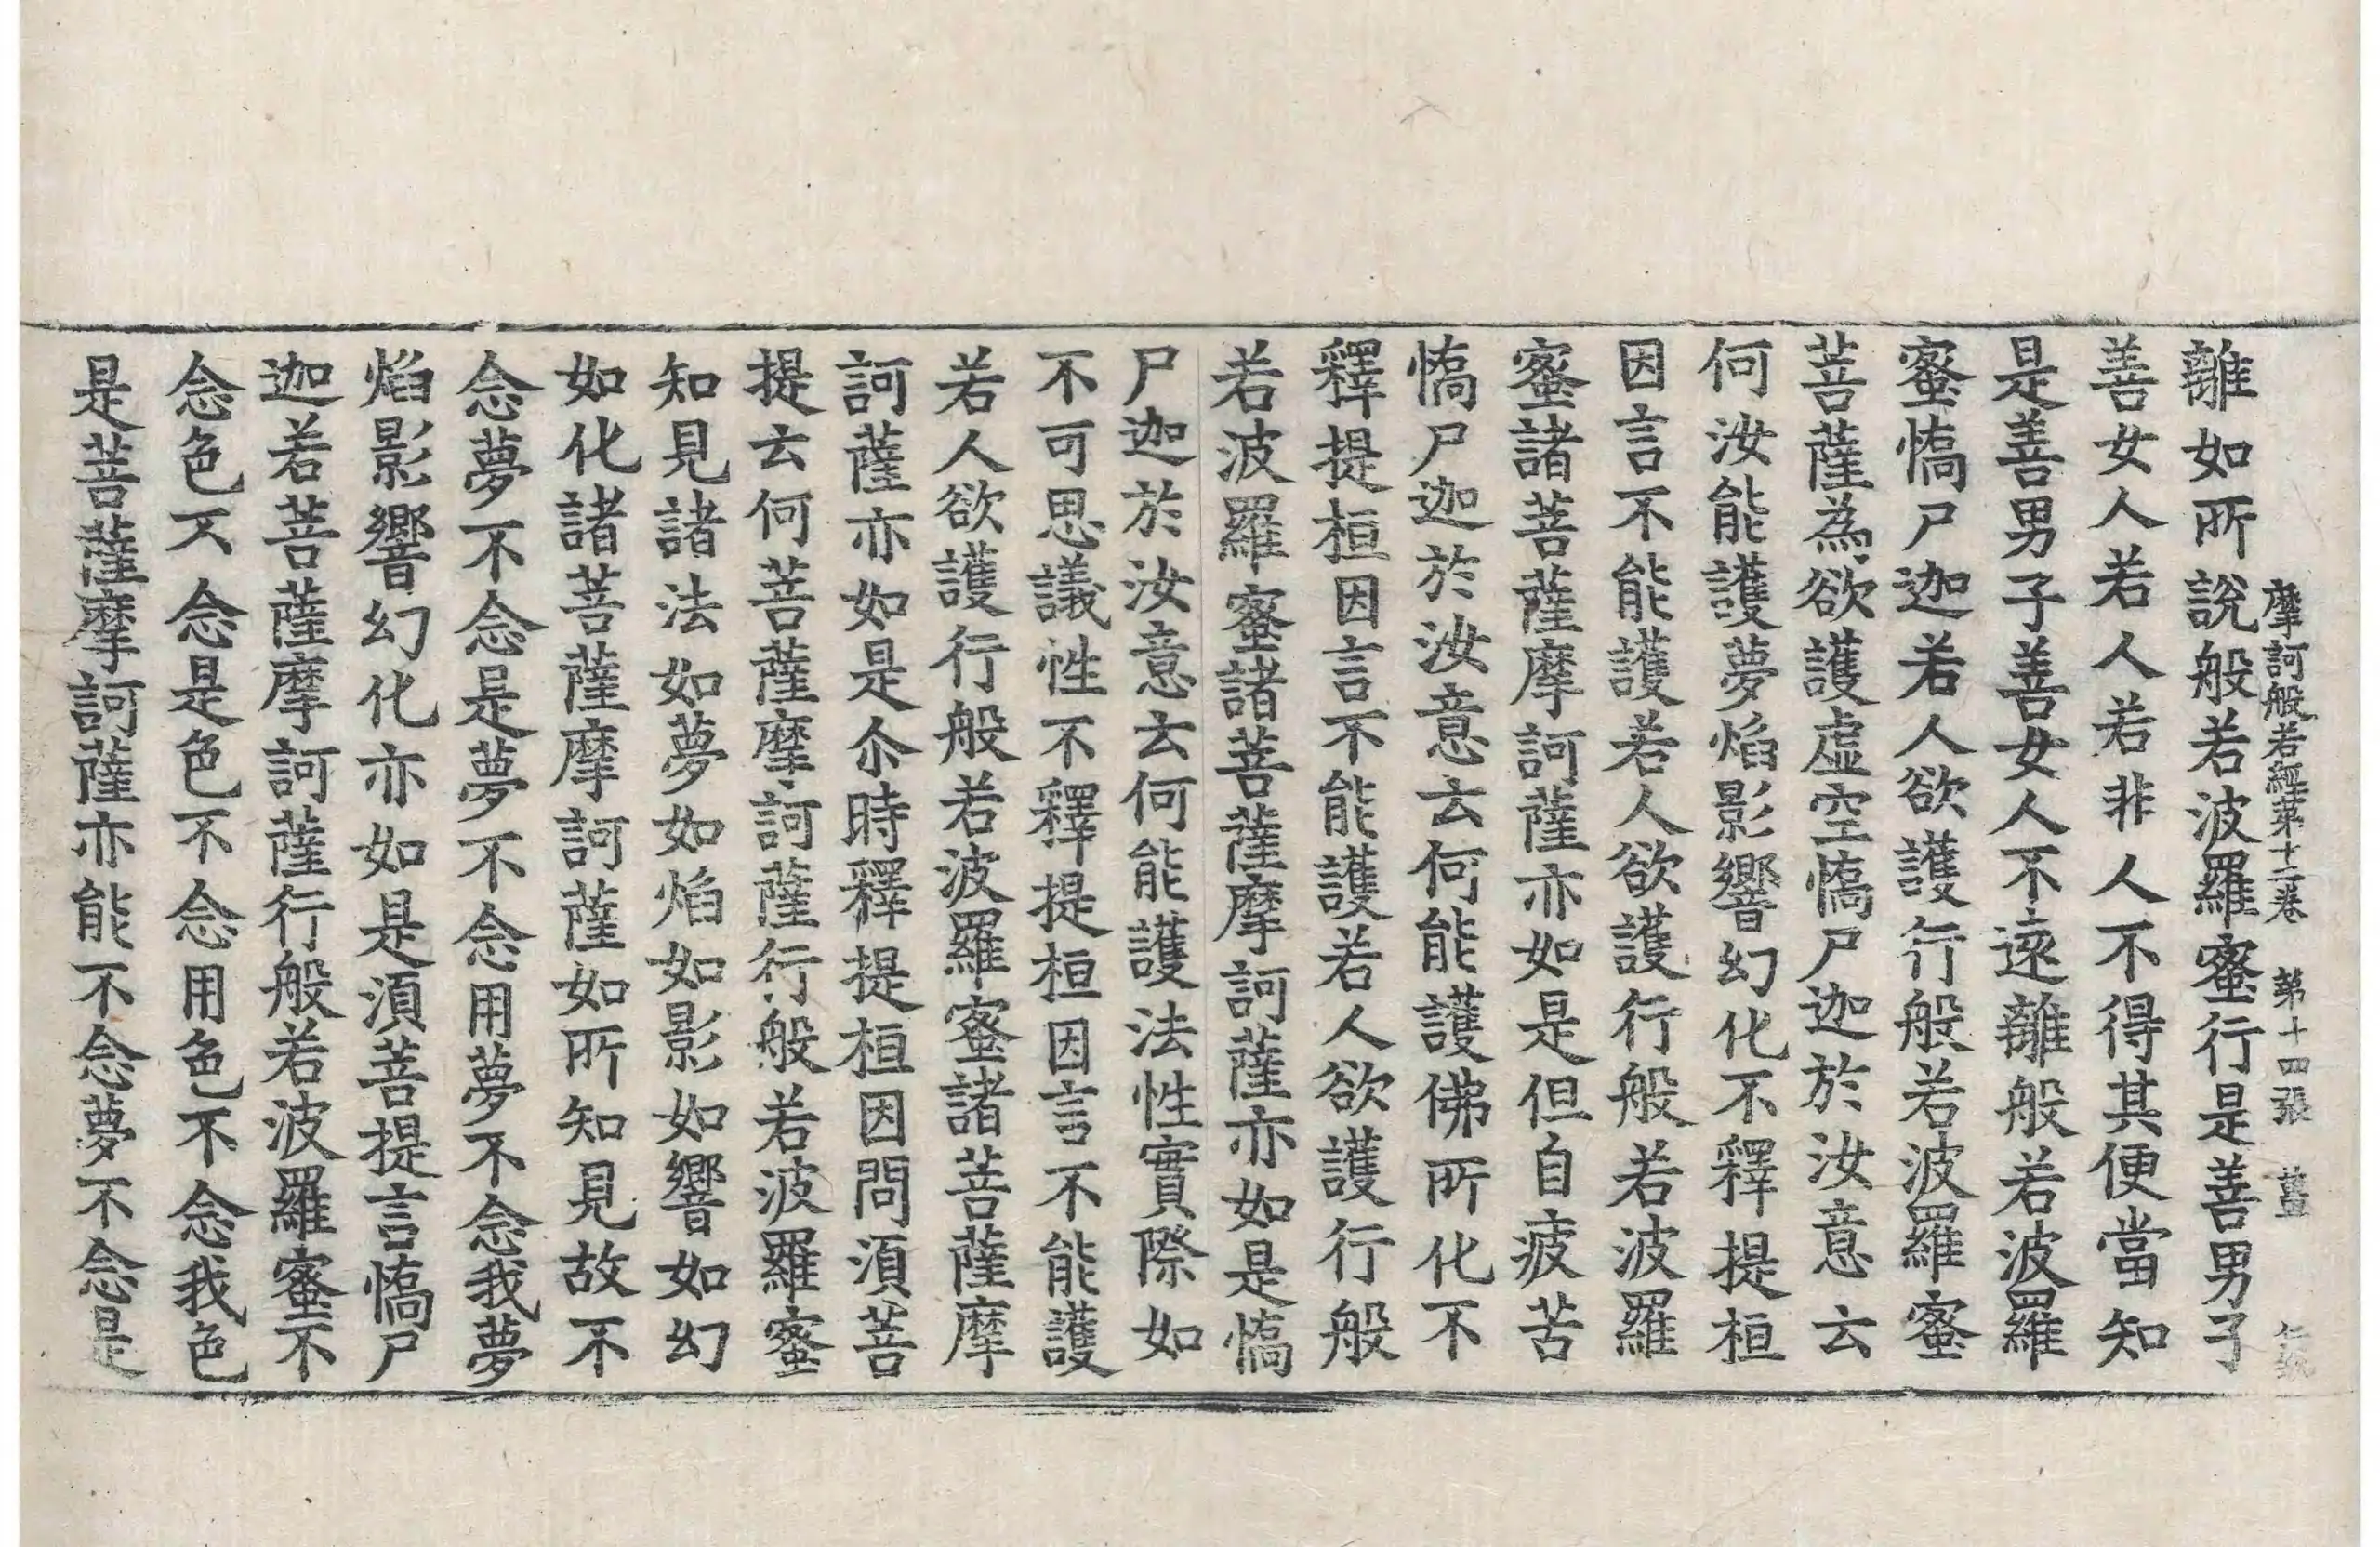 摩訶般若經第十二卷　第十四張　薑
離如所說般若波羅蜜行是善男子
善女人若人若非人不得其便當知
是善男子善女人不遠離般若波羅
蜜憍尸迦若人欲護行般若波羅蜜
菩薩為欲護虛空憍尸迦於汝意云
何汝能護夢焰影響幻化不釋提桓
因言不能護若人欲護行般若波羅
蜜諸菩薩摩訶薩亦如是但自疲苦
憍尸迦於汝意云何能護佛所化不
釋提桓因言不能護若人欲護行般
若波羅蜜諸菩薩摩訶薩亦如是憍
尸迦於汝意云何能護法性實際如
不可思議性不釋提桓因言不能護
若人欲護行般若波羅蜜諸菩薩摩
訶薩亦如是尒時釋提桓因問須菩
提云何菩薩摩訶薩行般若波羅蜜
知見諸法如夢如焰如影如響如幻
如化諸菩薩摩訶薩如所知見故不
念夢不念是夢不念用夢不念我夢
焰影響幻化亦如是須菩提言憍尸
迦若菩薩摩訶薩行般若波羅蜜不
念色不念是色不念用色不念我色
是菩薩摩訶薩亦能不念夢不念是